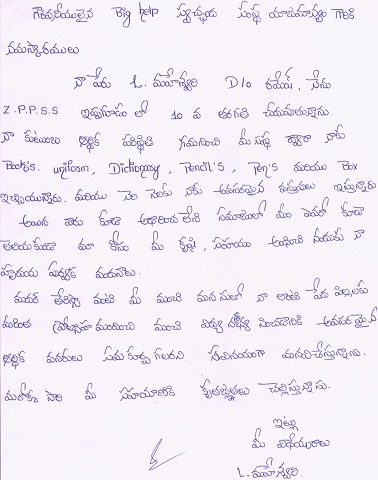 గౌరవనీయులైన Big help స్వచ్ఛంద సంస్థ యాజమాన్యం గారికి
నమస్కారములు
నా పేరు L. మహేశ్వరి D/o రమేష్, నేను
Z.P.P.S.S లో 10 వ తరగతి చదువుతున్నాను.
నా కుటుంబ ఆర్థిక పరిస్థితి గమనించి మీ సంస్థ ద్వారా నాకు
Books. uniform, Dictionary, Pencil's, Pen's మరియు Box
ఇచ్చియున్నారు. మరియు నెల నెలకు నాకు అవసరమైన వస్తువులు ఇస్తున్నారు
అయిన వారు కూడా ఆధారించ లేని సమాజంలో మీరు ఎవరో కూడా
తెలియకుండా మా కోసం మీ కృషి, సహాయం అందించి నందుకు నా
హృదయ పూర్వక వందనాలు.
మదర్ థెరిస్సా వంటి మీ మంచి మనసులో నా లాంటి పేద పిల్లలకు
మరింత ప్రోత్సాహం మంచి అవసరమైన
ఆర్థిక వనరులు సమకూర్చ గలరని సవినయంగా మనవిచేస్తున్నాను.
మరొక్క సారి మీ సహాయానికి కృతజ్ఞతలు చెల్లిస్తున్నాను.
ఇట్లు
మీ విధేయురాలు
L. మహేశ్వరి.